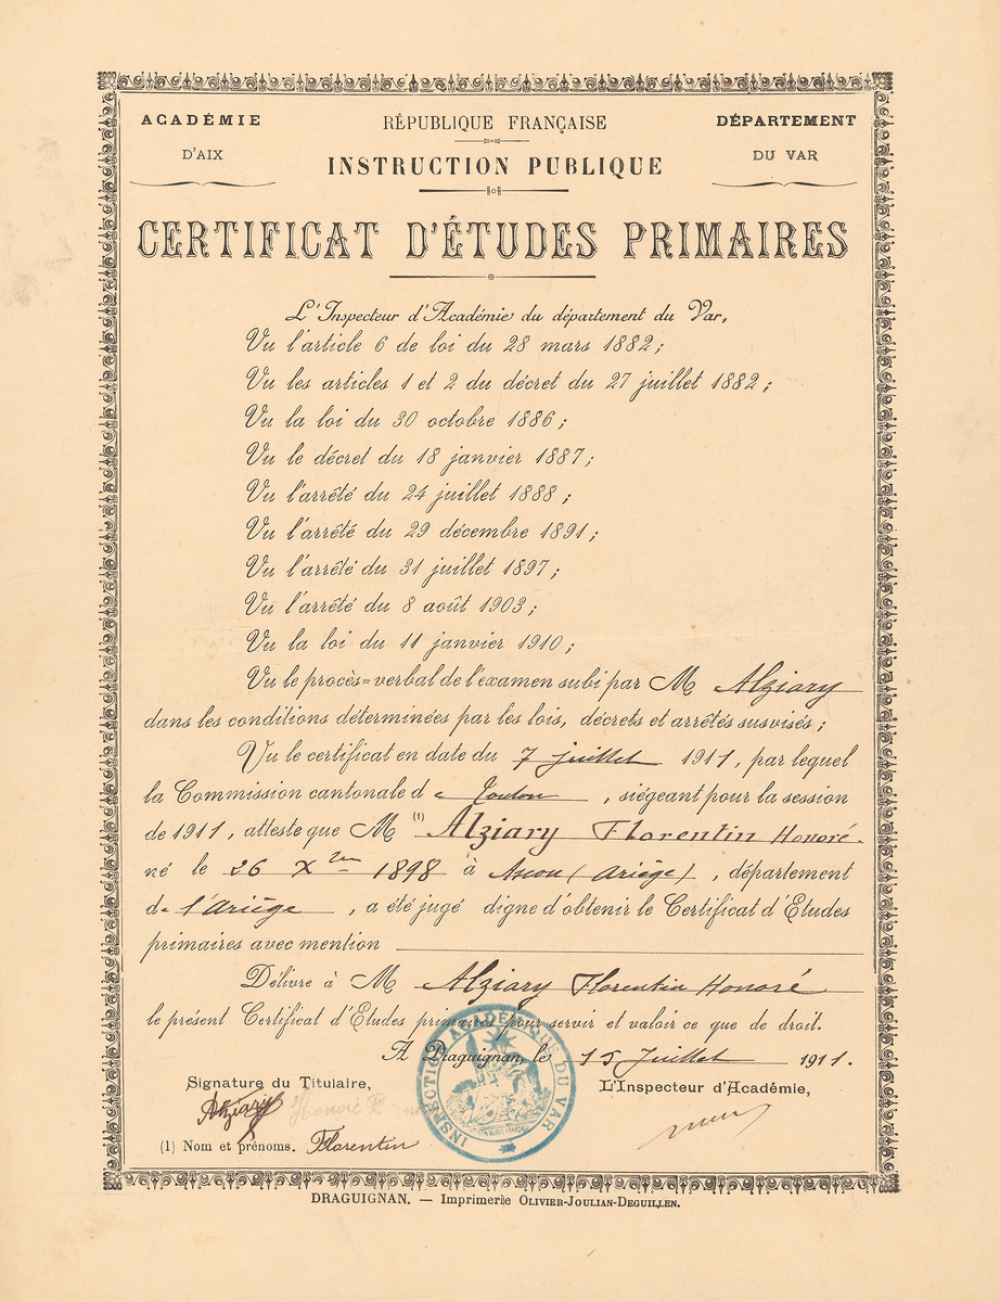 ACADÉMIE
D'AIX
RÉPUBLIQUE FRANÇAISE
INSTRUCTION PUBLIQUE
DÉPARTEMENT
DU VAR
CERTIFICAT D'ÉTUDES PRIMAIRES
L'Inspecteur d'Académie du département du Var,
Vu l'article 6 de loi du 28 mars 1882;
Vu les articles 1 et 2 du décret du 27 juillet 1882;
Vu la loi du 30 octobre 1886;
Vu le décret du 18 janvier 1887;
Vu l'arrêté du 24 juillet 1888;
Vu l'arrêté du 29 décembre 1891;
Vu l'arrêté du 31 juillet 1897;
Vu l'arrêté du 8 août 1903;
Vu la loi du 11 janvier 1910;
Vu le procès=verbal de l'examen subi par M Alziary
dans les conditions déterminées par les lois, décrets et arrêtés susvisés;
Vu le certificat en date du 7 juillet 1911, par lequel
la Commission cantonale de Toulon, siégeant pour la session
de 1911, atteste que M (1) Alziary Florentin Honoré.
né le 26 Xbre 1898 à Ascou (Ariège), département
de l'Ariège, a été jugé digne d'obtenir le Certificat d'Etudes
primaires avec mention
Délivré à M Alziary Florentin Honoré
le présent Certificat d'Etudes primaires pour servir et valoir ce que de droit.
A Draguignan, le 15 Juillet 1911.
Signature du Titulaire,
L'Inspecteur d'Académie,
Alziary Honoré
(1) Nom et prénoms. Florentin
INSPECTION ACADÉMIQUE DU VAR
DRAGUIGNAN. — Imprimerie OLIVIER-JOULIAN-DEGUILLEN.